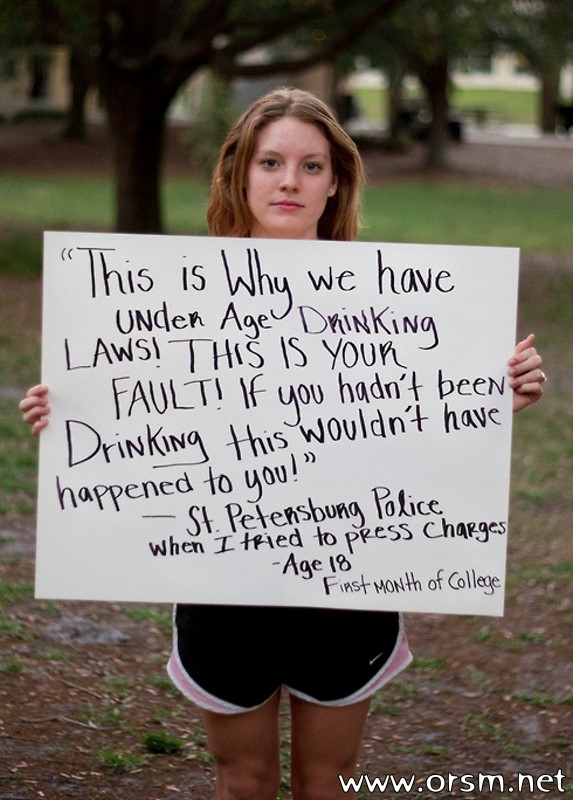 "This is Why we have
UNder Age DriNKiNg
LAWS! THIS IS YOUR
FAULT! If you hadn't been
Drinking this wouldn't have
happened to you!"
— St. Petersburg Police
when I tried to press charges
-Age 18
First Month of College
www.orsm.net